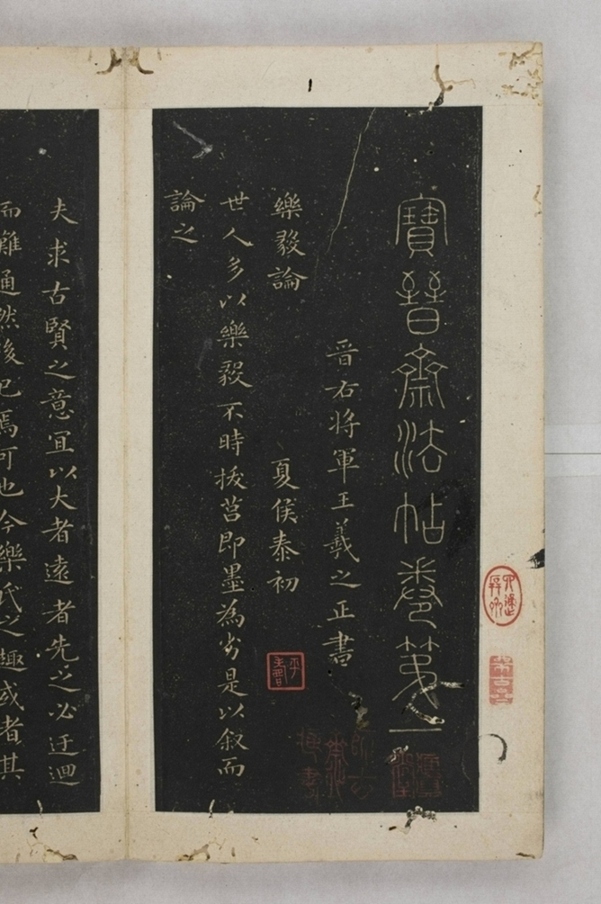 寶晉齋法帖卷第一
晉右將軍王羲之正書
樂毅論 夏侯泰初
世人多以樂毅不時拔莒即墨為劣是以叙而
論之
夫求古賢之意宜以大者遠者先之必迂迴
而難通然後已焉可也今樂氏之趣或者其